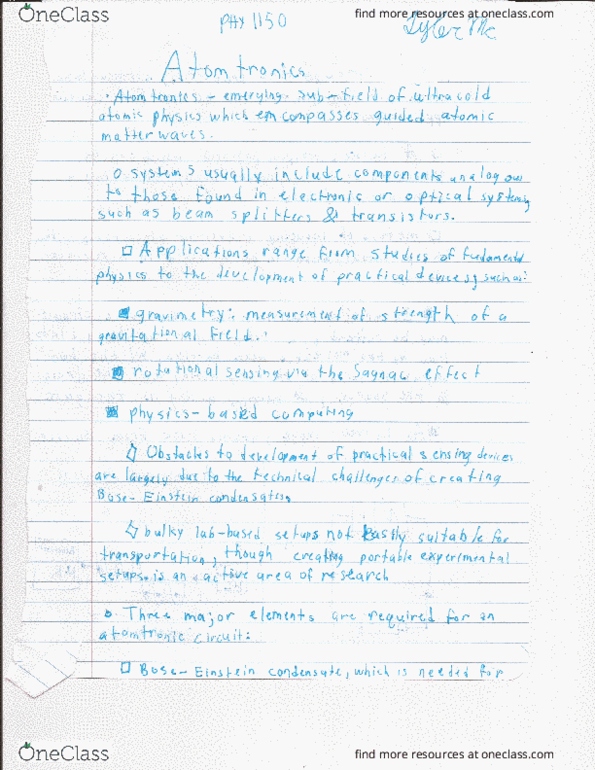 OneClass
find more resources at oneclass.com
PHY 1150
Tyler
Atomtronics
• Atomtronics - emerging sub-field of ultracold
atomic physics which encompasses guided atomic
matter waves.
o systems usually include components analogous
to those found in electronic or optical systems
such as beam splitters & transistors.
□ Applications range from studies of fundamental
physics to the development of practical devices, such as:
■ gravimetry: measurement of strength of a
gravitational field.
■ rotational sensing via the Sagnac effect
■ physics-based computing
◊ Obstacles to development of practical sensing devices
are largely due to the technical challenges of creating
Bose-Einstein condensates,
◊ bulky lab-based setups not easily suitable for
transportation, though creating portable experimental
setups is an active area of research
o Three major elements are required for an
atomtronic circuit:
□ Bose-Einstein condensate, which is needed for
OneClass
find more resources at oneclass.com